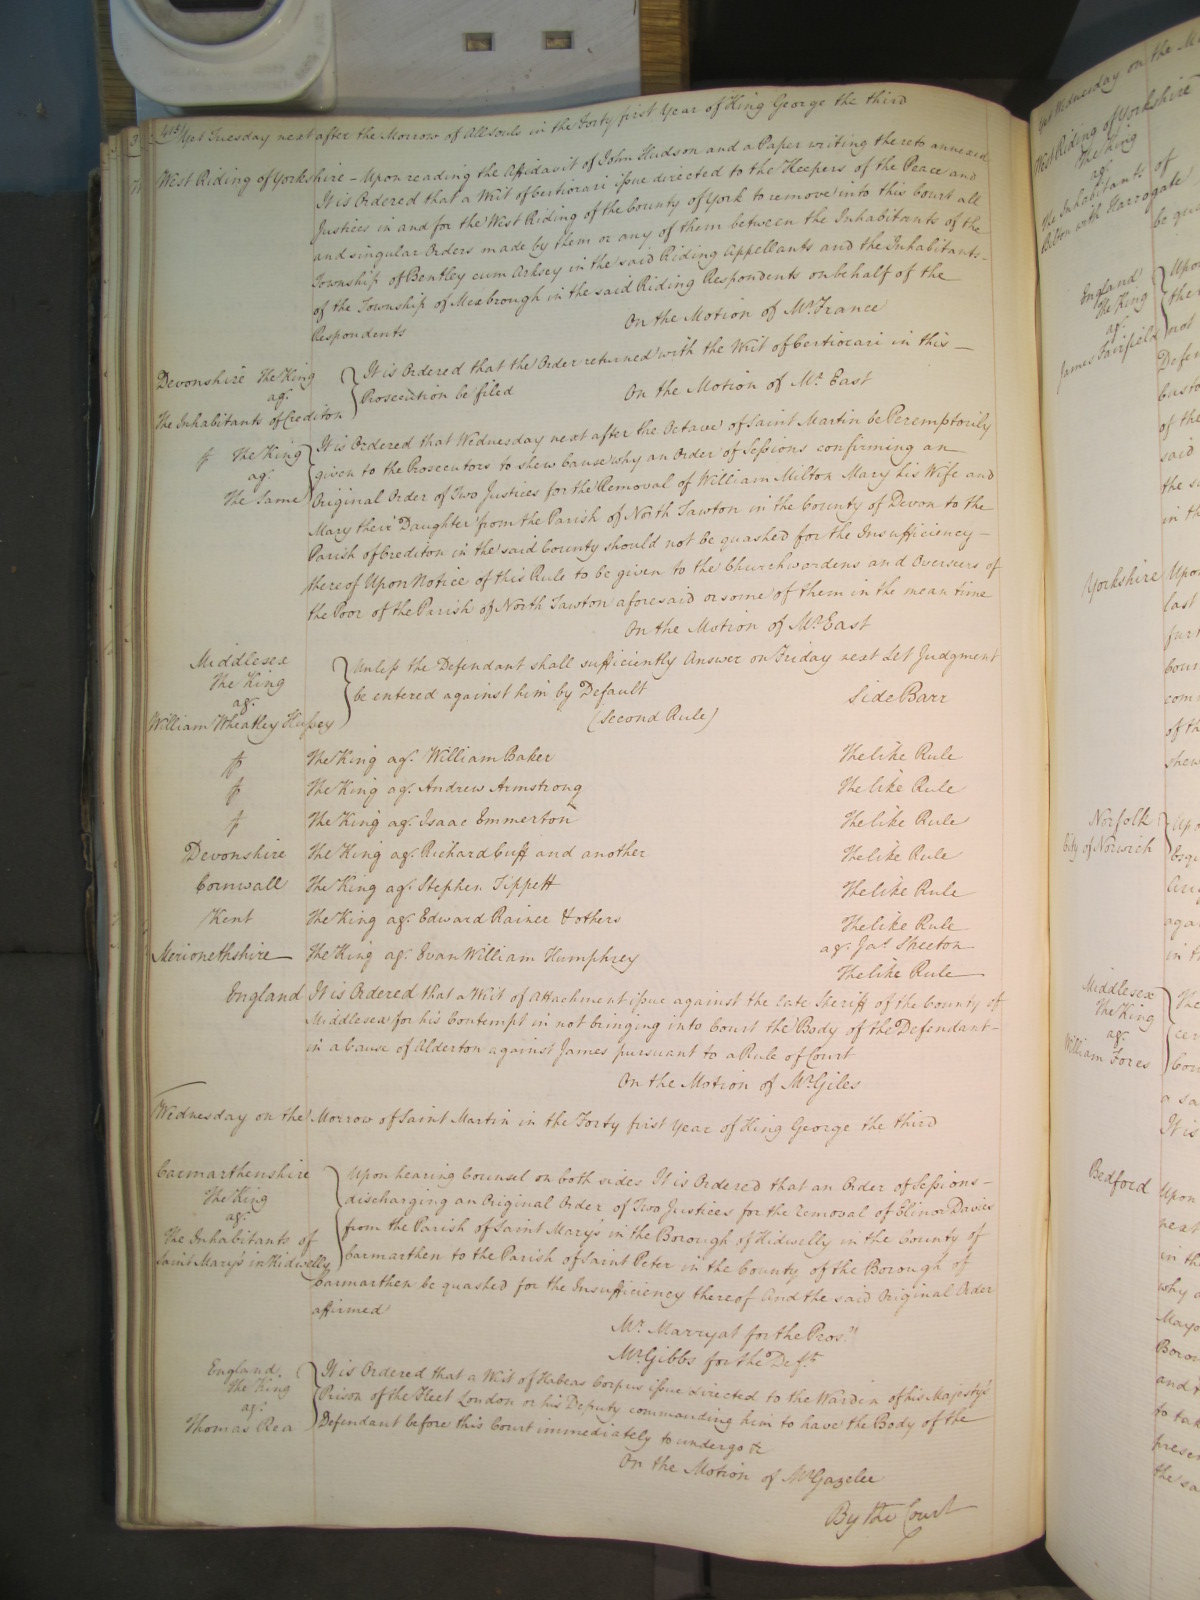 Yet Tuesday next after the Morrow of All souls in the Forty first Year of King George the third
West Riding of Yorkshire - Upon reading the Affidavit of John Hudson and a Paper writing thereto annexed
It is Ordered that a Writ of Certiorari issue directed to the Keepers of the Peace and
Justices in and for the West Riding of the County of York to remove into this Court all
and singular Orders made by them or any of them between the Inhabitants of the
Township of Bentley cum Arksey in the said Riding Appellants and the Inhabitants
of the Township of Mexbrough in the said Riding Respondents on behalf of the
Respondents
On the Motion of Mr. France
Devonshire The King
agt.
The Inhabitants of Crediton
It is Ordered that the Order returned with the Writ of Certiorari in this
Prosecution be filed
On the Motion of Mr. East
The King
agt.
The Same
It is Ordered that Wednesday next after the Octave of Saint Martin be Peremptorily
given to the Prosecutors to shew Cause why an Order of Sessions confirming an
Original Order of Two Justices for the Removal of William Milton Mary his Wife and
Mary their Daughter from the Parish of North Tawton in the County of Devon to the
Parish of Crediton in the said County should not be quashed for the Insufficiency
thereof Upon Notice of this Rule to be given to the Churchwardens and Overseers of
the Poor of the Parish of North Tawton aforesaid or some of them in the mean time
On the Motion of Mr. East
Middlesex
The King
agt.
William Wheatley Hussey
Unless the Defendant shall sufficiently Answer on Friday next Let Judgment
be entered against him by Default
Side Barr
(Second Rule)
The King agt. William Baker The like Rule
The King agt. Andrew Armstrong The like Rule
The King agt. Isaac Emmerton The like Rule
Devonshire The King agt. Richard Cuff and another The like Rule
Cornwall The King agt. Stephen Tippett The like Rule
Kent The King agt. Edward Rainer & others The like Rule
agt. Jas. Skeeton
Merionethshire The King agt. Evan William Humphrey
The like Rule
England It is Ordered that a Writ of Attachment issue against the late Sheriff of the County of
Middlesex for his Contempt in not bringing into Court the Body of the Defendant
in a Cause of Alderton against James pursuant to a Rule of Court
On the Motion of Mr. Giles
Wednesday on the Morrow of Saint Martin in the Forty first Year of King George the third
Carmarthenshire
The King
agt.
The Inhabitants of
Saint Mary's in Kidwelly
Upon hearing Counsel on both sides It is Ordered that an Order of Sessions
discharging an Original Order of Two Justices for the removal of Elinor Davies
from the Parish of Saint Mary's in the Borough of Kidwelly in the County of
Carmarthen to the Parish of Saint Peter in the County of the Borough of
Carmarthen be quashed for the Insufficiency thereof And the said Original Order
affirmed
Mr. Marryat for the Prosrs.
Mr. Gibbs for the Defts.
England
The King
agt.
Thomas Rea
It is Ordered that a Writ of Habeas Corpus issue directed to the Warden of his Majesty's
Prison of the Fleet London or his Deputy commanding him to have the Body of the
Defendant before this Court immediately to undergo &c
On the Motion of Mr. Gazelee
By the Court
Yet Wednesday on the
West Riding of Yorkshire
The King
agt.
The Inhabitants of
Bilton with Harrogate
England
The King
agt.
James Fairfield
Yorkshire
Norfolk
City of Norwich
Middlesex
The King
agt.
William Fores
Bedford